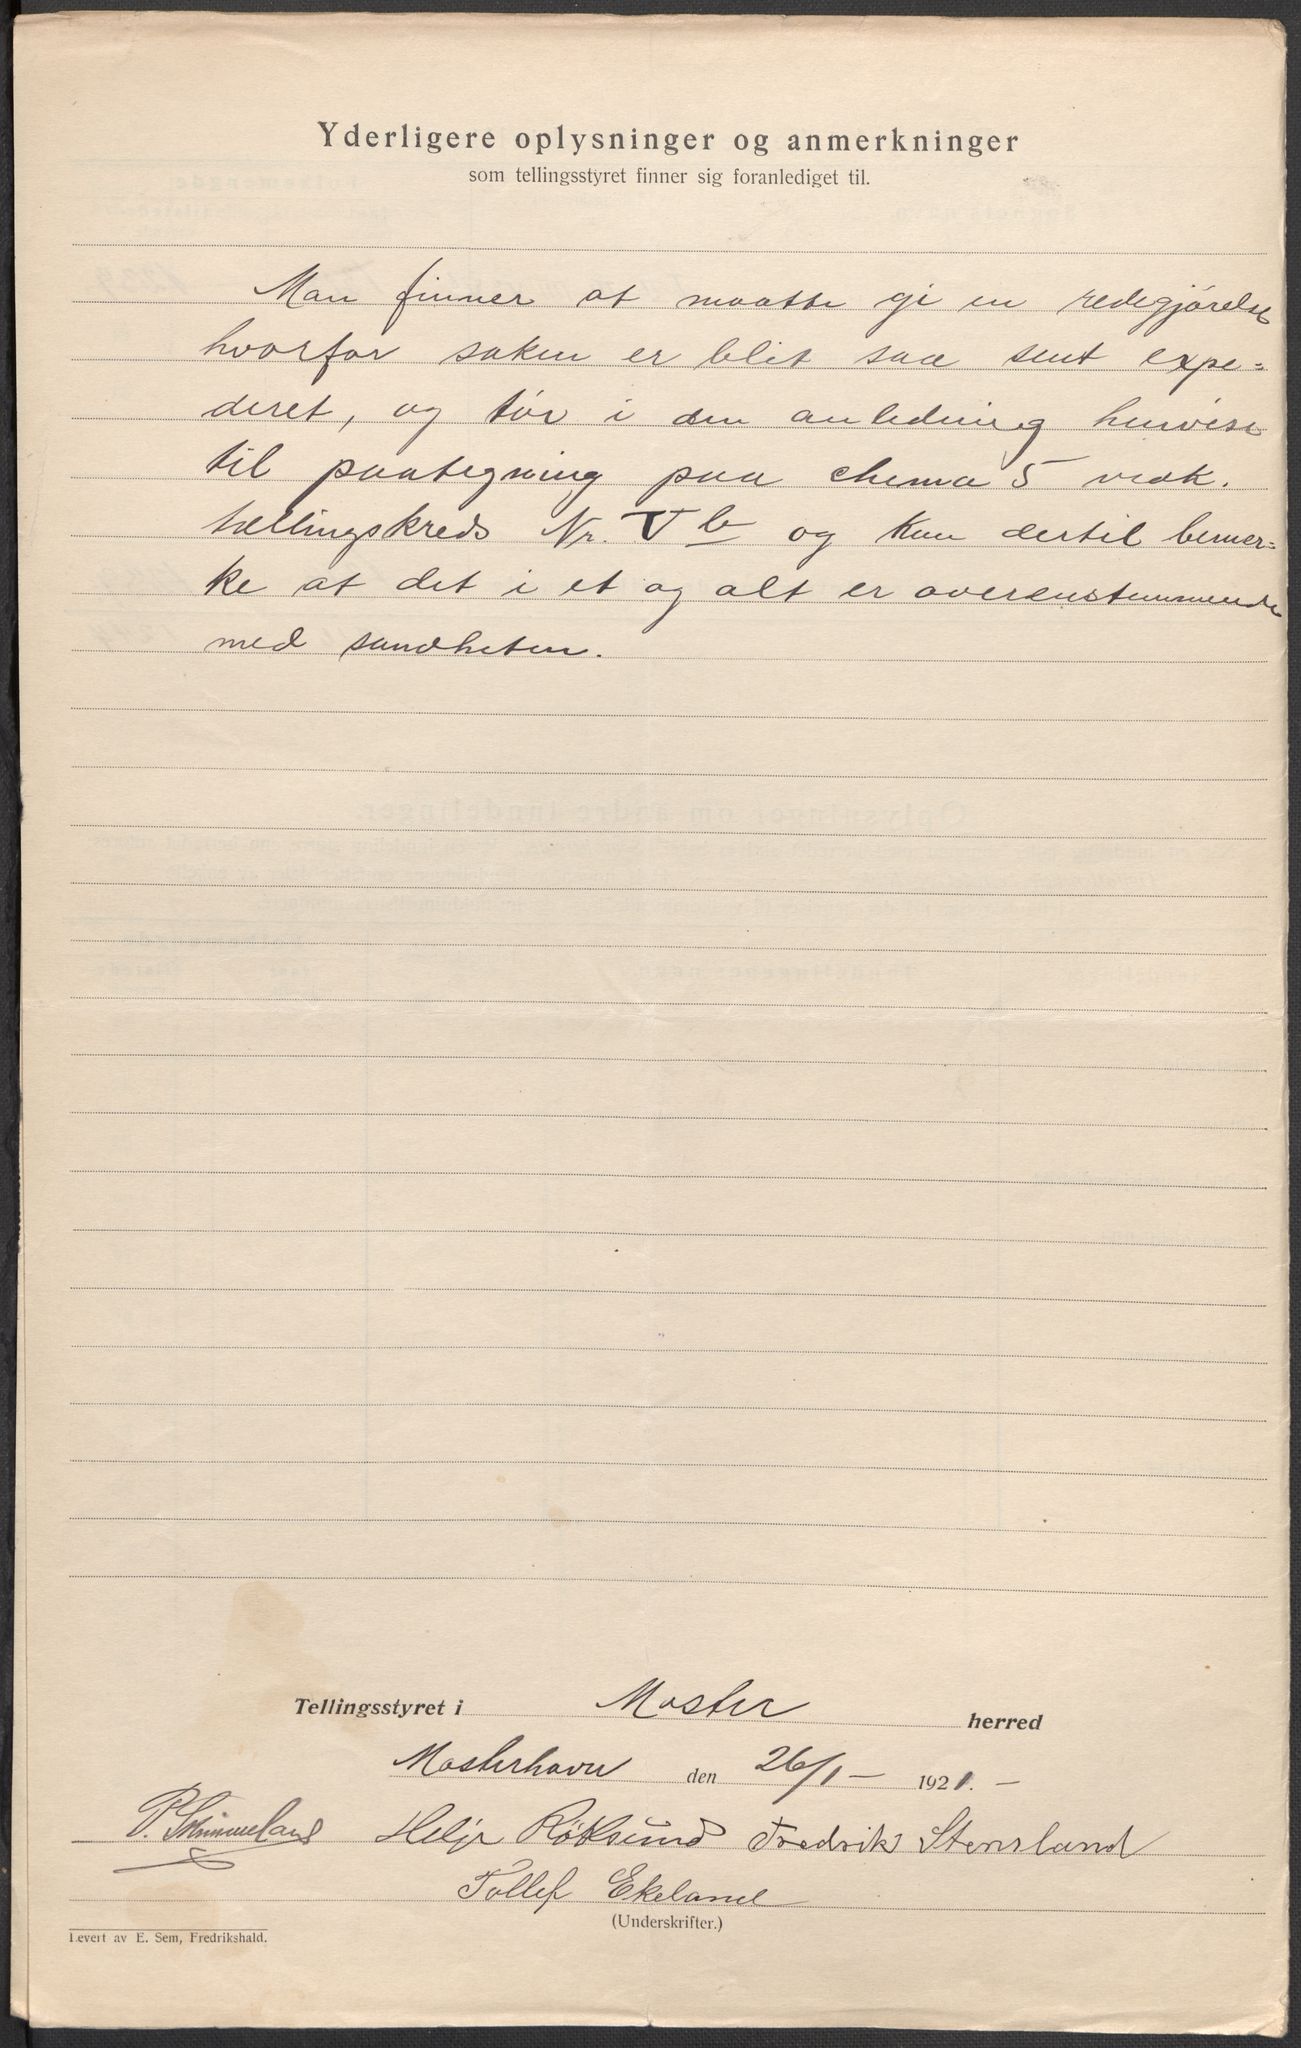 Yderligere oplysninger og anmerkninger
som tellingsstyret finner sig foranlediget til.
Man finner at maatte gi en redegjörelse
hvorfor saken er blit saa sent expe=
deret, og tör i den anledning henvise
til paategning paa chema 5 vedk.
tællingskreds Nr. V b og kan dertil bemer=
ke at det i et og alt er overenstemmende
med sandheten.
Tellingsstyret i Moster herred
Mosterhavn den 26/1 - 1921. -
P. Skimmeland Helje Röksund Fredrik Stensland
Tollef Ekeland
(Underskrifter.)
Levert av E. Sem, Fredrikshald.